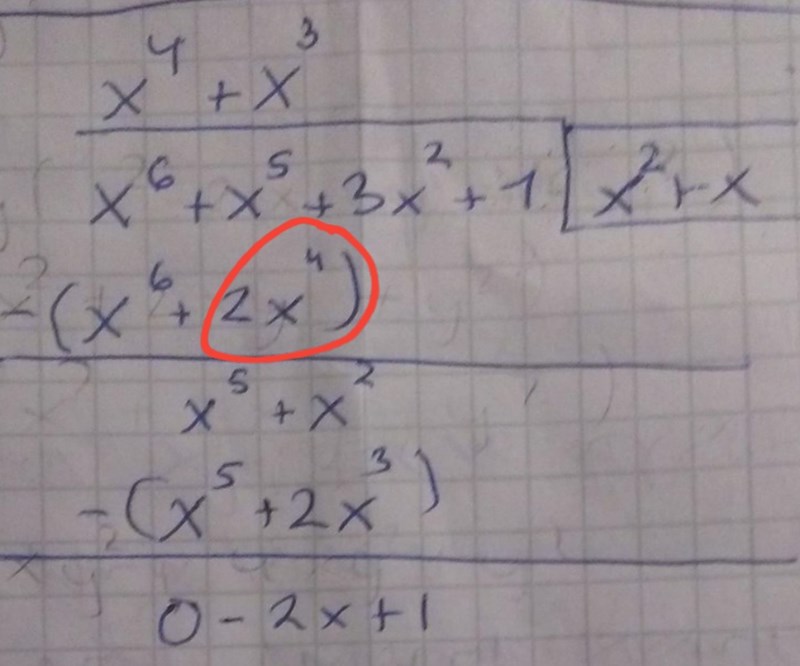 x⁴ + x³
x⁶ + x⁵ + 3x² + 1 x² + x
-(x⁶ + 2x⁴)
x⁵ + x²
-(x⁵ + 2x³)
0 - 2x + 1